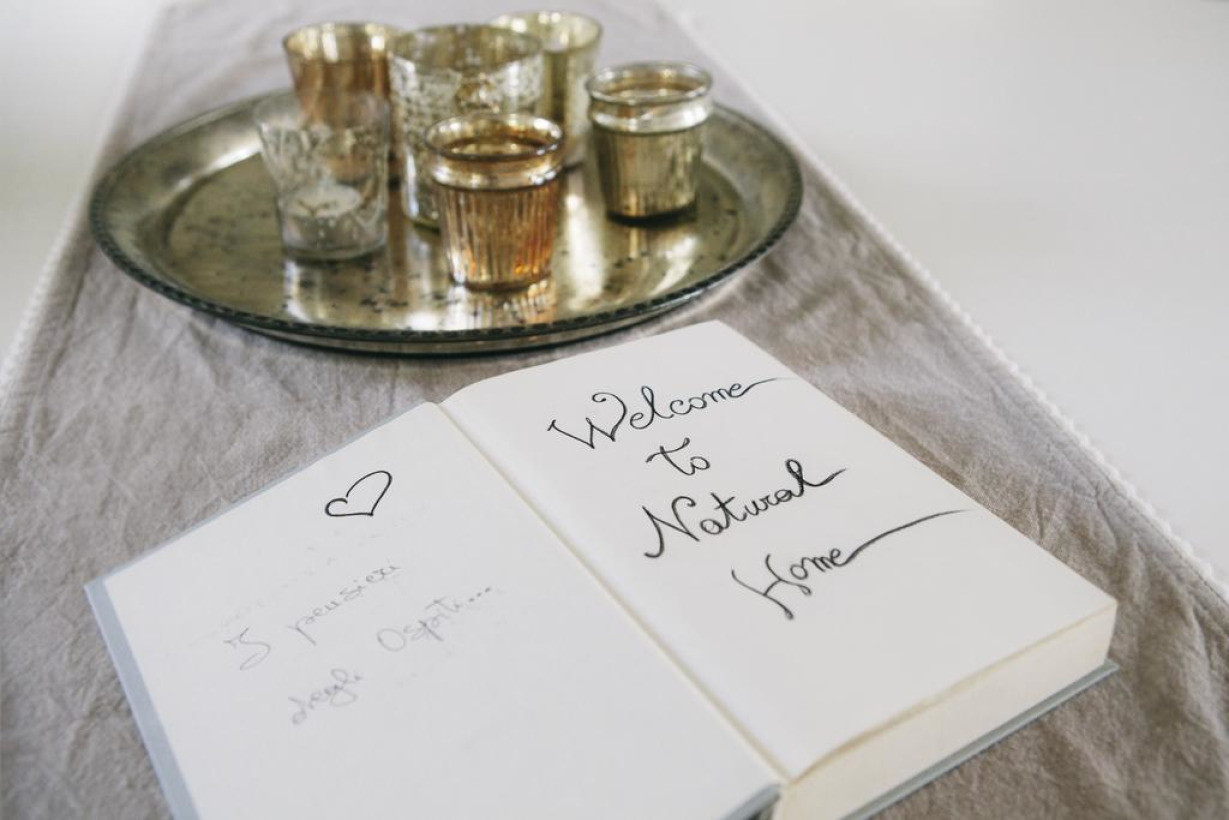 I pensieri
degli Ospiti...
Welcome
to
Natural
Home